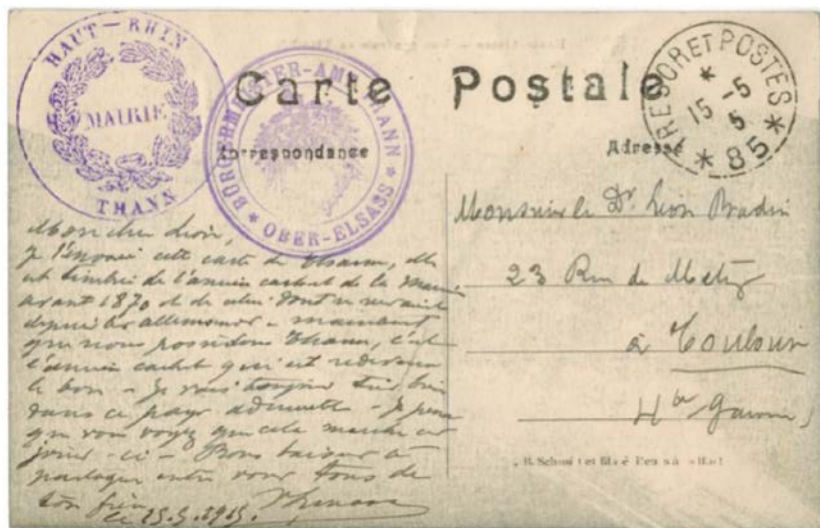 HAUT-RHIN
MAIRIE
THANN
BÜRGERMEISTER-AMT THANN
OBER-ELSASS
TRESOR ET POSTES
15 -5
5
* 85 *
Carte Postale
Correspondance
Adresse
Mon cher Léon,
je t'envoie cette carte de Thann, elle
est timbrée de l'ancien cachet de la mairie
avant 1870 et de celui dont se servaient
depuis les allemands - maintenant
que nous possédons Thann, c'est
l'ancien cachet qui est redevenu
le bon - Je vais toujours très bien
dans ce pays - Je pense
que vous voyez que cela marche ces
jours-ci - Bons baisers à
partager entre vous tous de
ton frère
ce 15.5.1915.
Monsieur le Dr Léon
23 Rue de Metz
à Toulouse
Hte Garonne